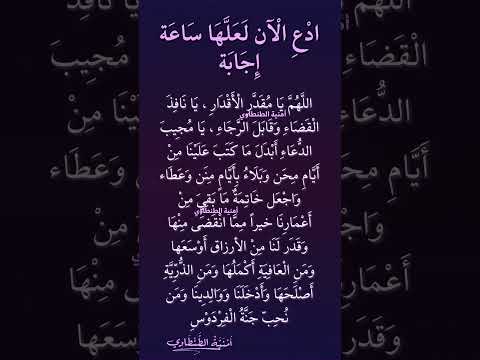 ادْعِ الْآن لَعَلَّهَا سَاعَة
إِجَابَة
اللَّهُمَّ يَا مُقَدِّرَ الْأَقْدَارِ ، يَا نَافِذَ
أمنية الطنطاوي
الْقَضَاءِ وَقَابَلَ الرَّجَاءِ ، يَا مُجِيبَ
الدُّعَاءِ أَبْدَلَ مَا كَتَبَ عَلَيْنَا مِنْ
أَيَّامِ مِحَن وَبَلَاءُ بِأَيَّامِ مِنَن وَعَطَاء
وَاجْعَل خَاتِمَةٌ مَا بَقِيَ مِنْ
أمنية الطنطاوي
أَعْمَارِنَا خيراً مِمَّا انْقَضَى مِنْهَا
وَقَدَر لَنَا مِنْ الأرزاق أَوْسَعَها
وَمَنِ الْعَافِيَةِ أَكْمَلُهَا وَمَن الذُّرِّيَّةِ
أَصْلَحَهَا وَأَدْخَلَنَا وَوَالِدِينَا وَمَن
نُحِبّ جَنَّةُ الْفِرْدَوْسِ
أمنية الطنطاوي